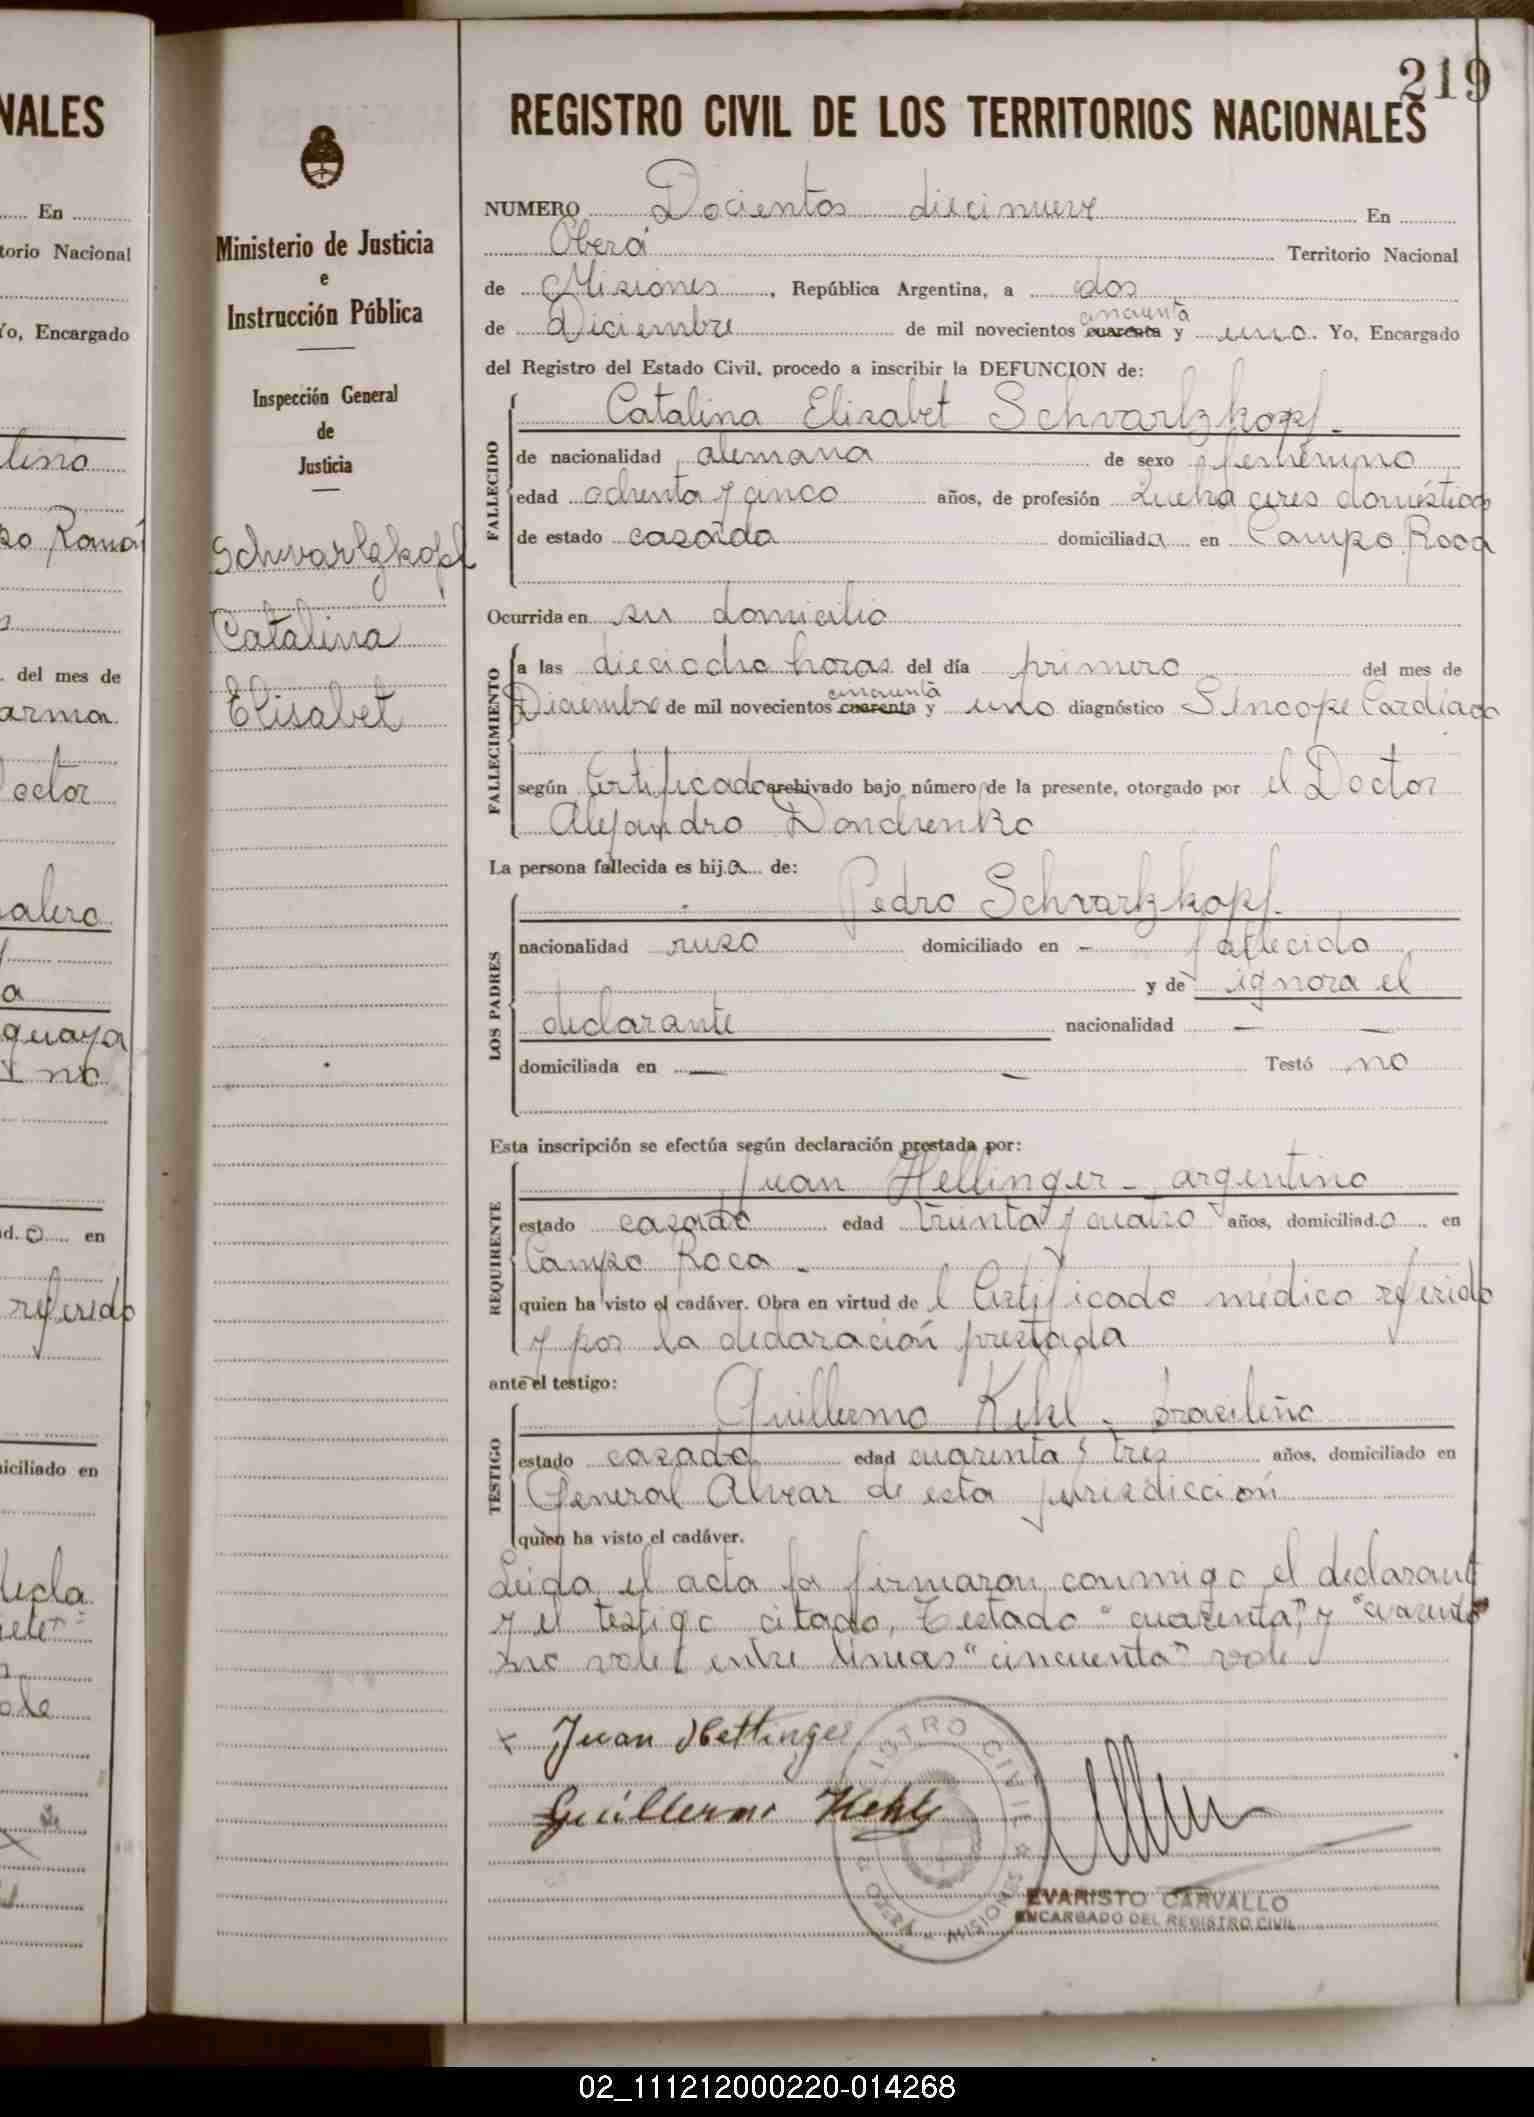 NALES
En
torio Nacional
Yo, Encargado
lino
del mes de
octor
guaya
d. o en
referido
iciliado en
219
Ministerio de Justicia
e
Instrucción Pública
Inspección General
de
Justicia
Schvartzkopf
Catalina
Elisabet
REGISTRO CIVIL DE LOS TERRITORIOS NACIONALES
NUMERO Docientos diecinueve En
Oberá Territorio Nacional
de Misiones, República Argentina, a dos
cincuenta
de Diciembre de mil novecientos cuarenta y uno. Yo, Encargado
del Registro del Estado Civil, procedo a inscribir la DEFUNCION de:
Catalina Elisabet Schvartzkopf.-
FALLECIDO
de nacionalidad alemana de sexo femenino
edad ochenta y cinco años, de profesión Queha ceres domésticos
de estado casada domiciliada en Campo Roca
Ocurrida en su domicilio
FALLECIMIENTO
a las dieciocho horas del día primero del mes de
cincuenta
Diciembre de mil novecientos cuarenta y uno diagnóstico Síncope Cardíaco
según Certificado archivado bajo número de la presente, otorgado por el Doctor
Alejandro Dondrenko
La persona fallecida es hija de:
LOS PADRES
Pedro Schvartzkopf.
nacionalidad ruso domiciliado en - fallecido
y de ignora el
declarante nacionalidad — —
domiciliada en — — Testó no
Esta inscripción se efectúa según declaración prestada por:
REQUIRENTE
Juan Hellinger - argentino
estado casado edad treinta y cuatro años, domiciliado en
Campo Roca -
quien ha visto el cadáver. Obra en virtud de l Certificado médico referido
y por la declaración prestada
ante el testigo:
TESTIGO
Guillermo Kehl - brasileño
estado casado edad cuarenta y tres años, domiciliado en
General Alvear de esta jurisdicción
quien ha visto el cadáver.
Leída el acta la firmaron conmigo el declarante
y el testigo citado, Testado "cuarenta" y "cuarenta"
no vale, entre líneas "cincuenta" vale
Juan Hettinger
Guillermo Kehl
REGISTRO CIVIL
OBERÁ - MISIONES
EVARISTO CARVALLO
ENCARGADO DEL REGISTRO CIVIL
02_111212000220-014268